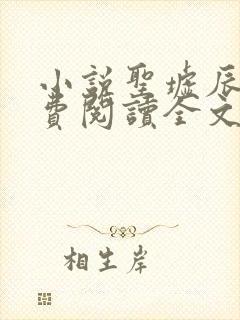 小説聖墟辰
費閱讀全文
相生岸